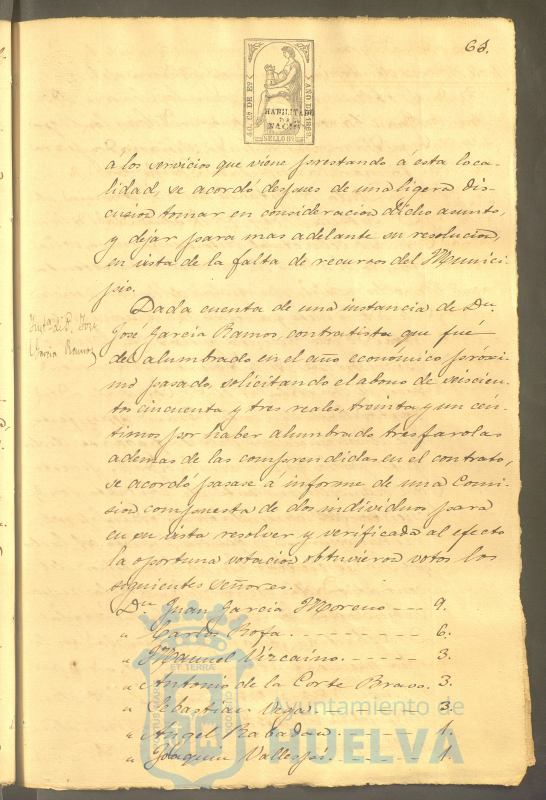 68.
40. Cs DE Eo
AÑO DE 1869
HABILITADO
POR LA
NACION
SELLO 9o
a los servicios que viene prestando á esta loca-
lidad, se acordó despues de una ligera dis-
cusion tomar en consideracion dicho asunto,
y dejar para mas adelante su resolucion,
en vista de la falta de recursos del Munici-
pio.
Insta. de D. Jose
Garcia Ramos
Dada cuenta de una instancia de Dn.
José Garcia Ramos, contratista que fué
del alumbrado en el año económico próxi-
mo pasado, solicitando el abono de seiscien-
tos cincuenta y tres reales, treinta y un cén-
timos por haber alumbrado tres farolas
ademas de las comprendidas en el contrato,
se acordó pasase a informe de una Comi-
sion compuesta de dos individuos para
en su vista resolver y verificada al efecto
la oportuna votacion obtuvieron votos los
siguientes Señores.
Dn. Juan Garcia Moreno --- 9.
" Carlos Rofa. --------- 6.
" Manuel Vizcaino. ------ 3.
" Antonio de la Corte Bravo. 3.
" Sebastian Vega ------- 3.
" Angel Rabadan ------ 1.
" Joaquin Vallespi. ------ 1.
ET TERRÆ
Ayuntamiento de
HUELVA